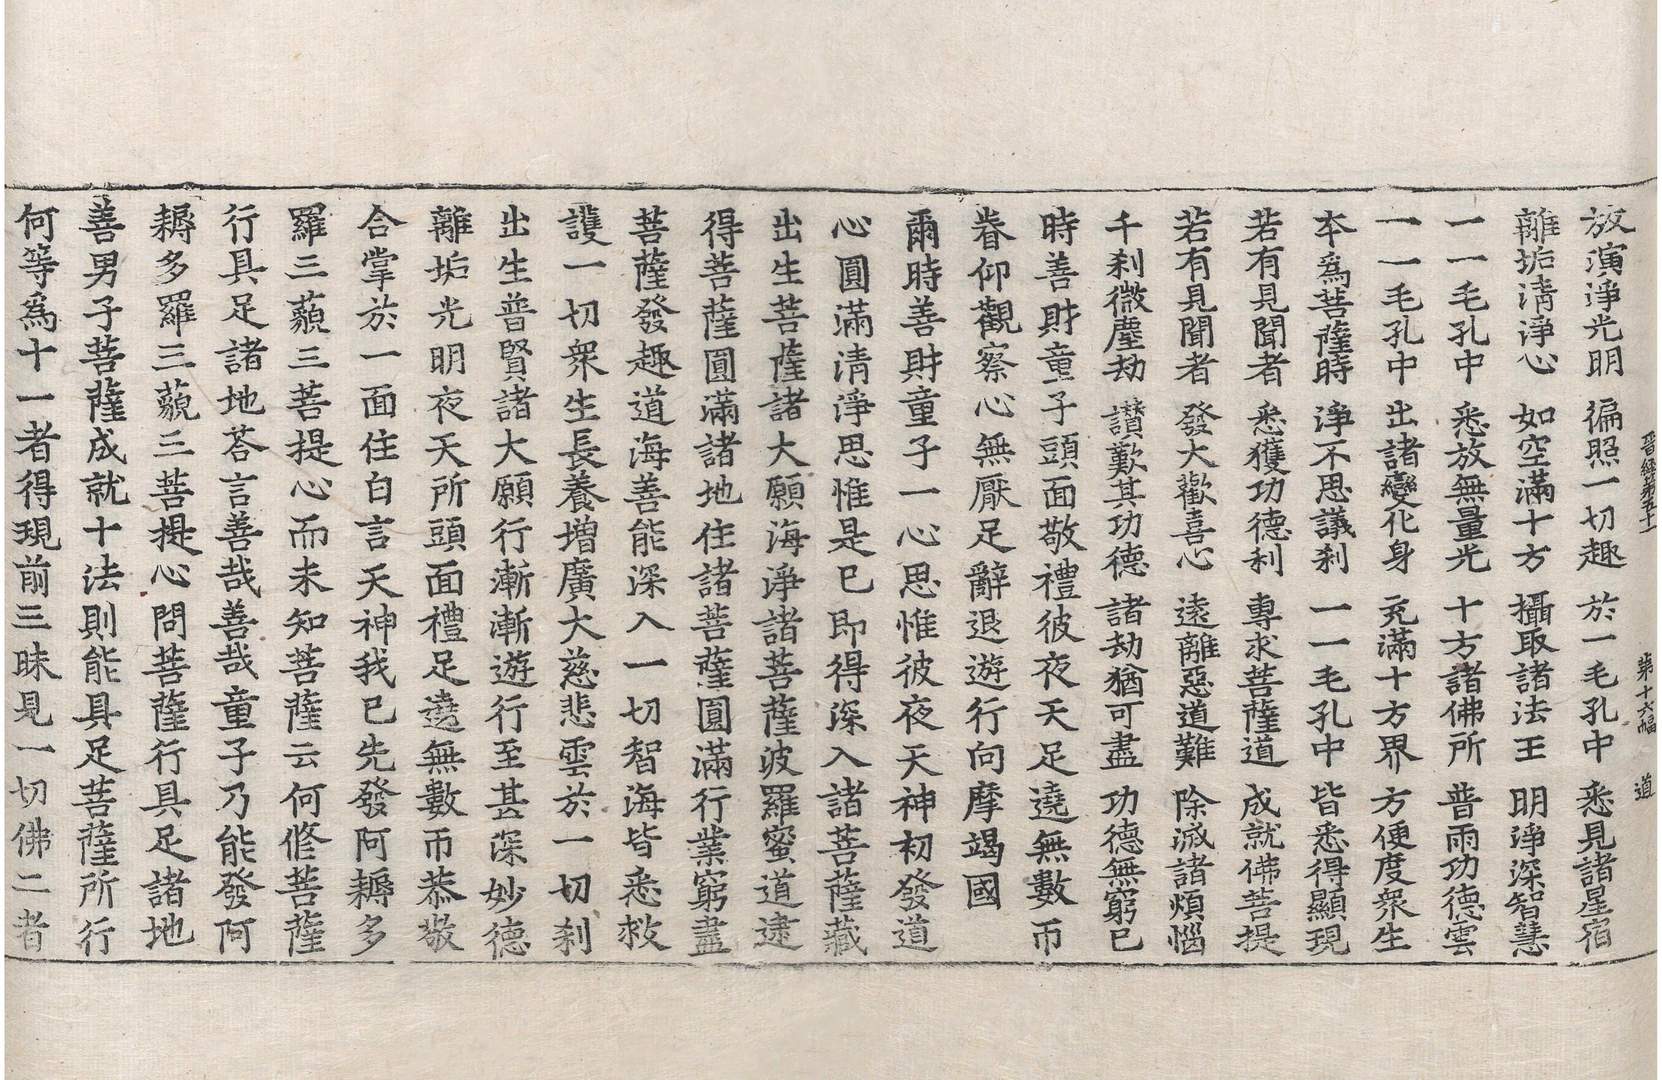 晋經第五十 第十六幅 道
放演淨光明 徧照一切趣 於一毛孔中 悉見諸星宿
離垢淸淨心 如空滿十方 攝取諸法王 明淨深智慧
一一毛孔中 悉放無量光 十方諸佛所 普雨功德雲
一一毛孔中 出諸變化身 充滿十方界 方便度衆生
本爲菩薩時 淨不思議刹 一一毛孔中 皆悉得顯現
若有見聞者 悉獲功德利 專求菩薩道 成就佛菩提
若有見聞者 發大歡喜心 遠離惡道難 除滅諸煩惱
千刹微塵劫 讃歎其功德 諸劫猶可盡 功德無窮已
時善財童子頭面敬禮彼夜天足遶無數帀
眷仰觀察心無厭足辭退遊行向摩竭國
爾時善財童子一心思惟彼夜天神初發道
心圓滿清淨思惟是已即得深入諸菩薩藏
出生菩薩諸大願海淨諸菩薩波羅蜜道逮
得菩薩圓滿諸地住諸菩薩圓滿行業窮盡
菩薩發趣道海善能深入一切智海皆悉救
護一切衆生長養增廣大慈悲雲於一切刹
出生普賢諸大願行漸漸遊行至甚深妙德
離垢光明夜天所頭面禮足遶無數帀恭敬
合掌於一面住白言天神我已先發阿耨多
羅三藐三菩提心而未知菩薩云何修菩薩
行具足諸地荅言善哉善哉童子乃能發阿
耨多羅三藐三菩提心問菩薩行具足諸地
善男子菩薩成就十法則能具足菩薩所行
何等爲十一者得現前三昧見一切佛二者